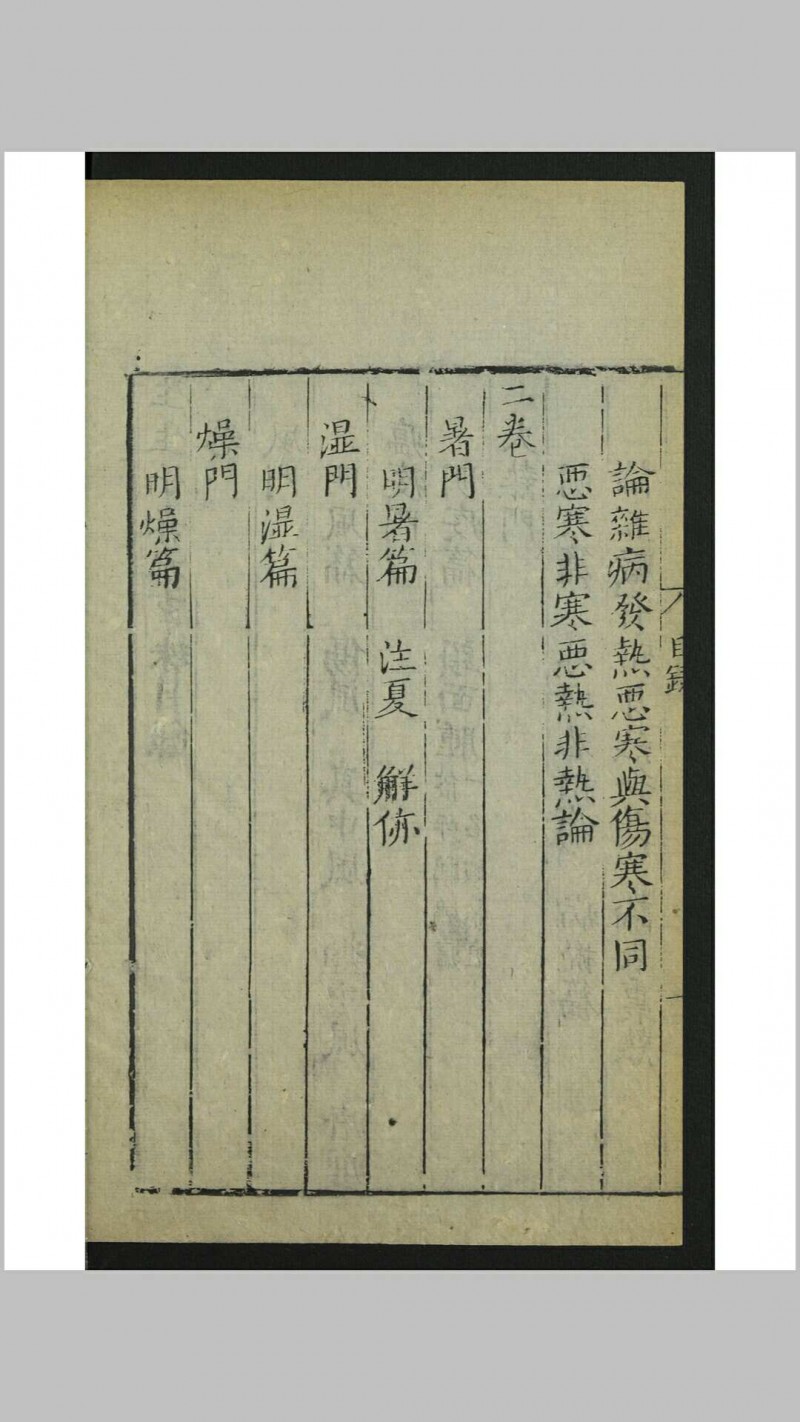 目錄
論雜病發熱惡寒與傷寒不同
惡寒非寒惡熱非熱論
二卷
暑門
明暑篇 注夏 解㑊
湿門
明湿篇
燥門
明燥篇